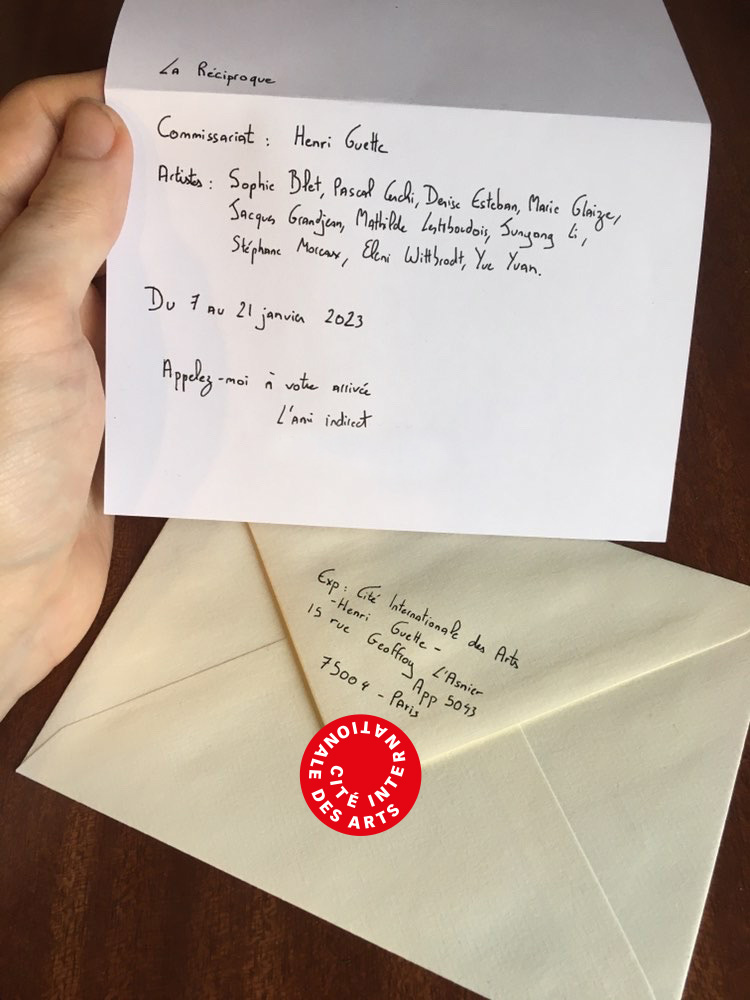 La Réciproque
Commissariat : Henri Guette
Artistes : Sophie Blet, Pascal Denise Esteban, Marie Glaize,
Jacques Grandjean, Mathilde Lestiboudois, Junyong Li,
Stéphane Moreaux, Eleni Wittbrodt, Yue Yuan.
Du 7 au 21 janvier 2023
Appelez-moi à votre arrivée
L'ami indirect
Exp : Cité Internationale des Arts
-Henri Guette -
15 rue Geoffroy L'Asnier
App 5043
75004 - Paris
CITÉ INTERNATIONALE DES ARTS